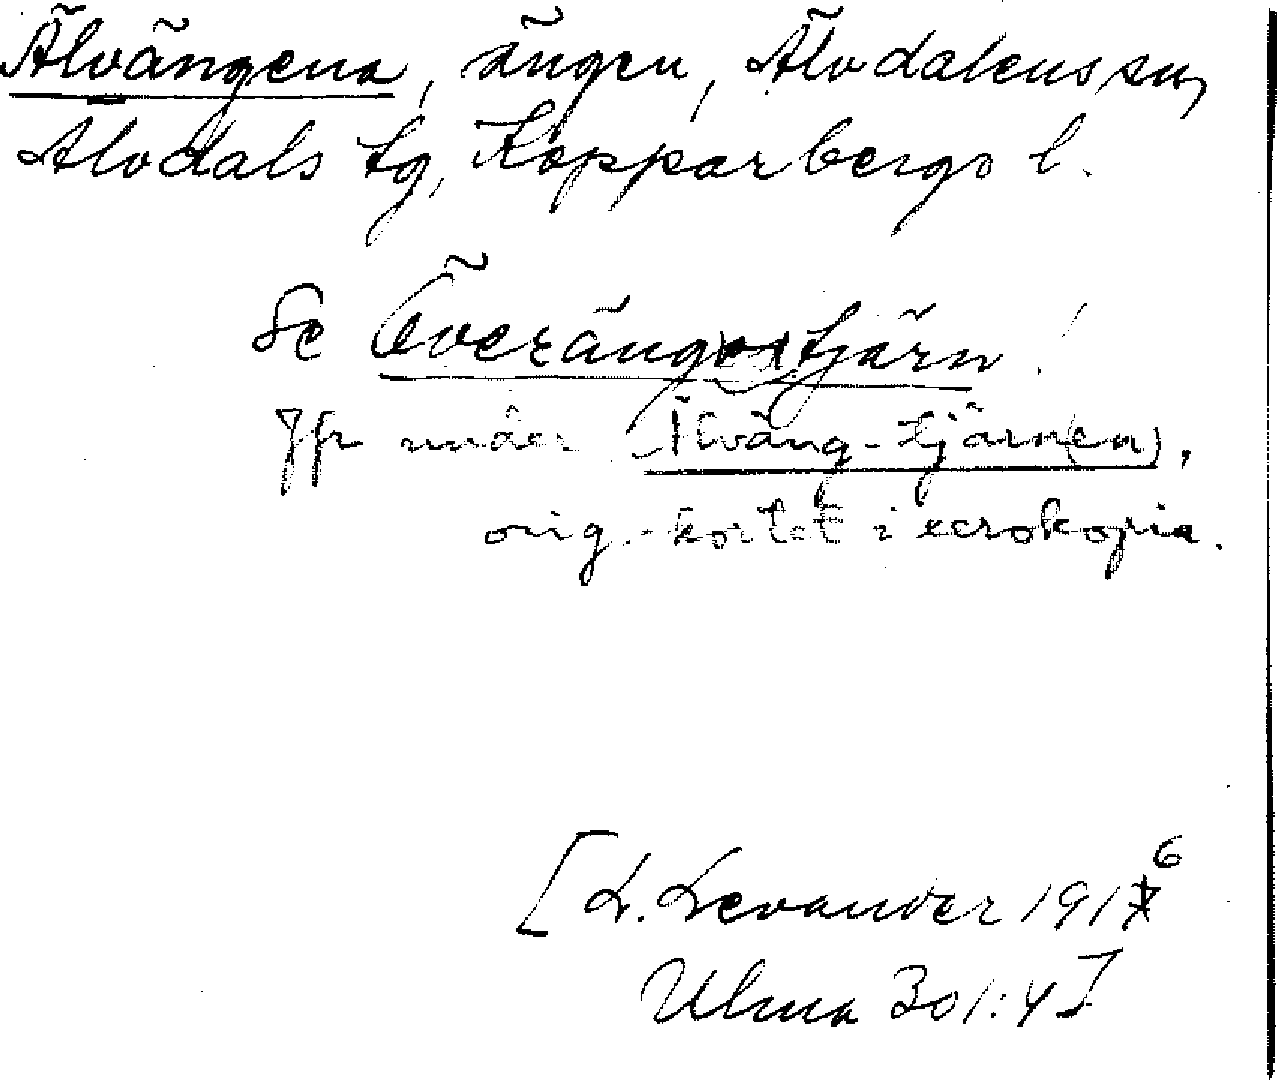 Älvängena, ängen, Älvdalens sn,
Älvdals tg, Kopparbergs l.
Se Överäng(es)tjärn!
Jfr under Älväng-tjärn(en),
orig.-kortet i xerokopia.
[L. Levander 1916
Ulma 301:4]